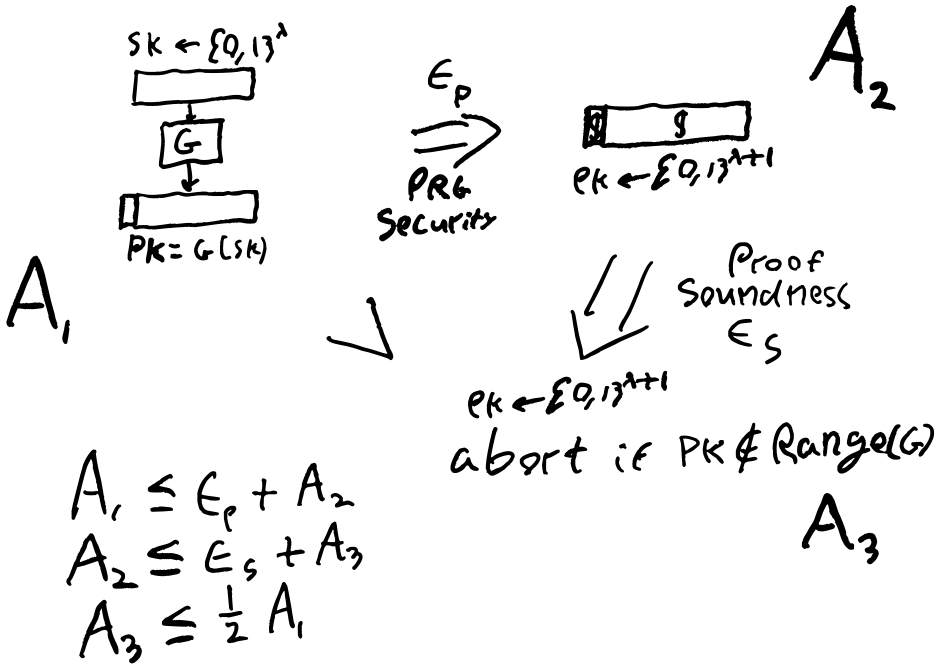 sk ← {0,1}^λ
G
PK = G(SK)
A₁
ϵₚ
PRG
Security
A₂
$ $
PK ← {0,1}^λ+1
Proof
Soundness
ϵ_S
PK ← {0,1}^λ+1
abort if PK ∉ Range(G)
A₃
A₁ ≤ ϵₚ + A₂
A₂ ≤ ϵ_S + A₃
A₃ ≤ ½ A₁